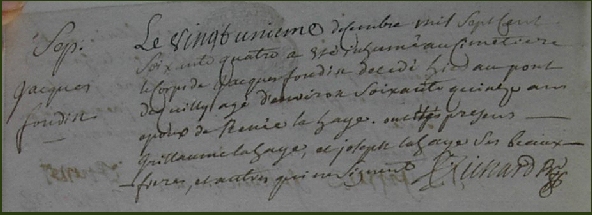 Sep.
Jacques
foudin
Le Vingtunieme decembre mil Sept Cent
Soixante quatre a été inhumé au Cimetiere
le Corps de Jacques foudin decedé hier au pont
agé d'environ Soixante quinze ans
epoux de Renée la haye. ont étés presens
Guillaume la haye, et joseph la haye Ses beaux
freres, et autres qui ne Signent
Richard